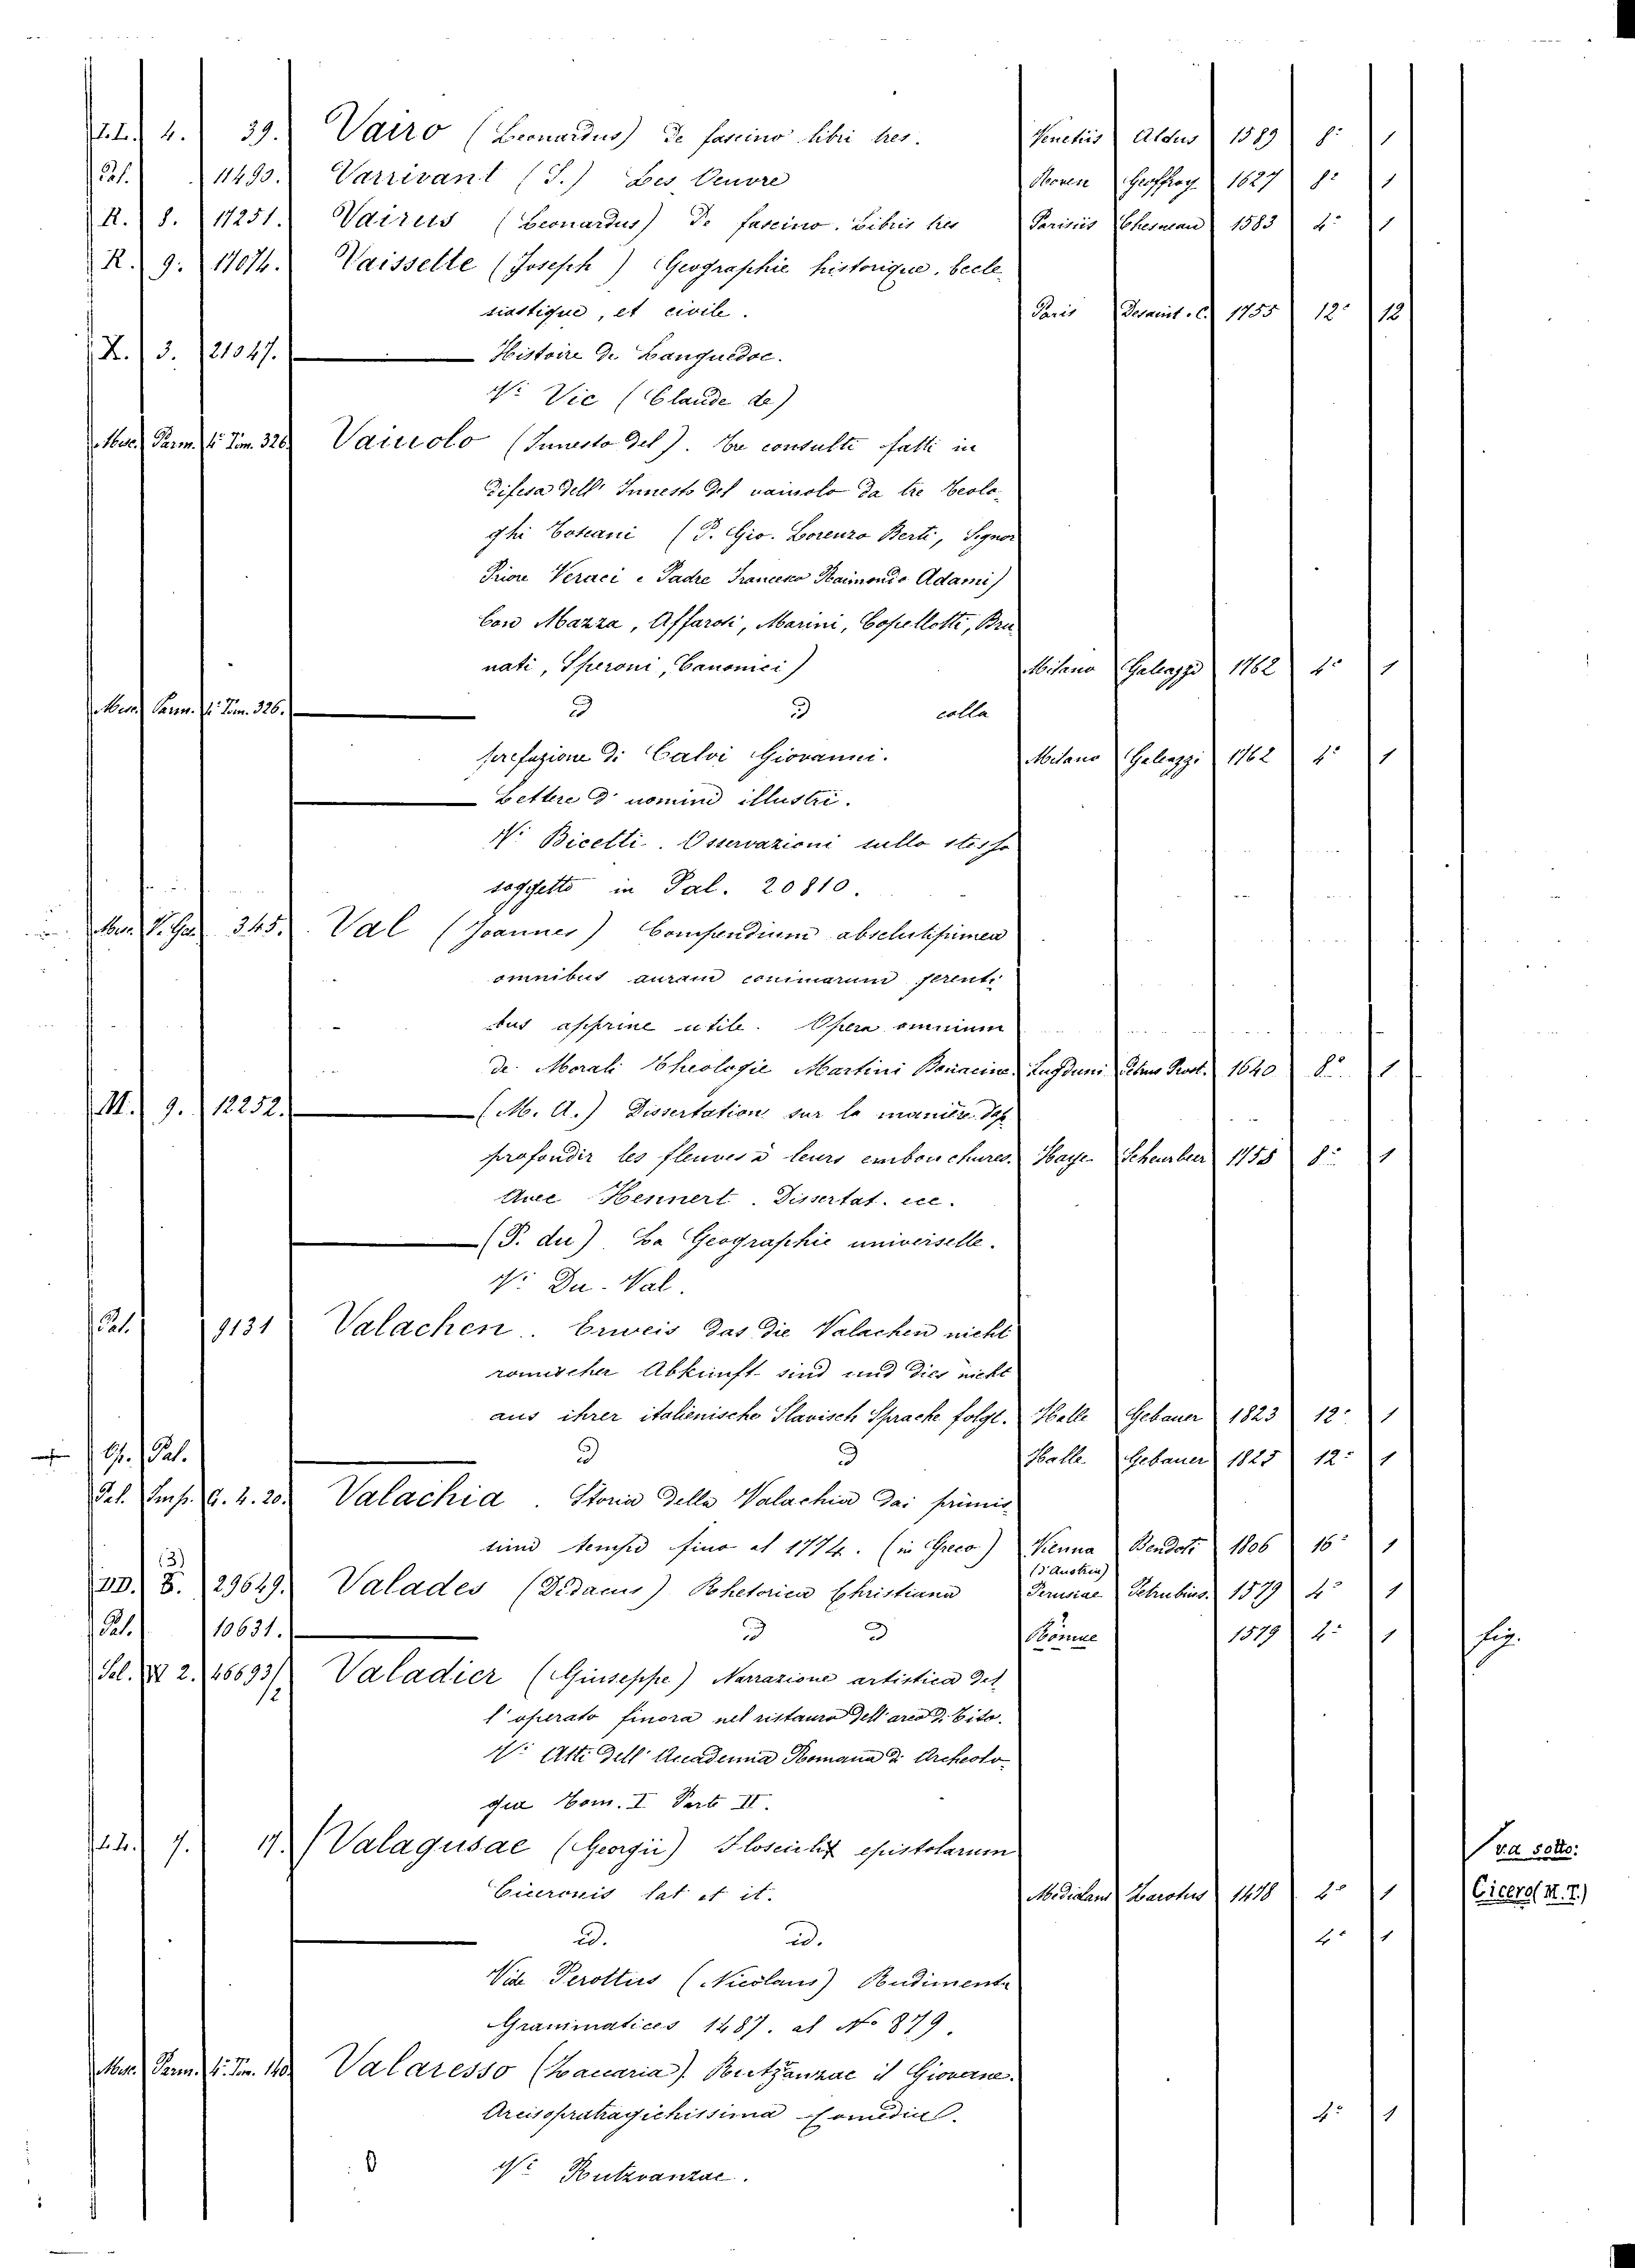 4. 39. Vairo (Leonardus) De fascino libri tres. Venetiis Aldus 1589 8º 1
Pal. 11490. Varrivant (S.) Les Oeuvre Rouen Geoffroy 1627 8º 1
R. 8. 11251. Vairus (Leonardus) De fascino. Libris tres Parisiis Chesneau 1583 4º 1
R. 9. 11074. Vaisselle (Joseph) Geographie historique, eccle-
siastique, et civile. Paris Desaint. C. 1755 12º 12
X. 3. 21047. Histoire de Languedoc.
Vi Vic (Claude de)
Misc. Parm. 4º Tom. 326. Vaiuolo (Innesto del). Tre consulte fatte in
difesa dell' Innesto del vaiuolo da tre Teolo-
ghi Toscani (P. Gio. Lorenzo Berti, Signor
Priore Veraci e Padre Francesco Raimondo Adami)
Con Mazza, Affaroti, Marini, Copellotti, Bru-
nati, Speroni, Canonici) Milano Galeazzi 1762 4º 1
Misc. Parm. 4º Tom. 326. id id colla
prefazione di Calvi Giovanni. Milano Galeazzi 1762 4º 1
Lettere d' uomini illustri.
Vi Bicetti. Osservazioni sullo stesso
soggetto in Pal. 20810.
345. Val (Joannes) Compendium
omnibus curam
apprime utile. Opera omnium
de Morali Theologie Martini Bonacina. Lugduni 1640 8º 1
M. 9. 12252. (M. A.) Dissertation sur la manière d'ap
profondir les fleuves à leurs embouchures. Haye Scheurleer 1758 8º 1
Avec Hennert. Dissertat. ecc.
(P. du). La Geographie universelle.
Vi Du-Val.
Pal. 9131 Valachen. Erweis das die Valachen nicht
romischer Abkunft sind und dies nicht
aus ihrer italienische Slavisch Sprache folgt. Halle Gebauer 1823 12º 1
Pal. id id Halle Gebauer 1825 12º 1
Pal. G. 4. 20. Valachia. Storia della Valachia dai primis-
simi tempi fino al 1774. (in Greco) Vienna Bendoti 1806 16º 1
(d'Austria)
(3)
DD. 8. 29649. Valades (Didacus) Rhetorica Christiana Perusiae Petrubius. 1579 4º 1
Pal. 10631. id id Romae 1579 4º 1 fig.
Sal. M 2. 46693/2 Valadier (Giuseppe) Narrazione artistica del-
l'operato finora nel ristauro dell'arco di Tito.
Vi Atti dell' Accademia Romana di Archeolo-
gia Tom. I Part II.
7. 17. (Valagusae (Georgii) Flosculi epistolarum √va sotto:
Ciceronis lat et it. Mediolani Zarotus 1478 4º 1 Cicero (M. T.)
id. id. 4º 1
Vide Perottus (Nicolaus) Rudimenta
Grammatices 1487. al No 879.
Misc. Parm. 4º Tom. 140. Valaresso (Zaccaria) Rutzvanzac il Giovane.
Arcisopratragichissima Comedia. 4º 1
Vi Rutzvanzac.